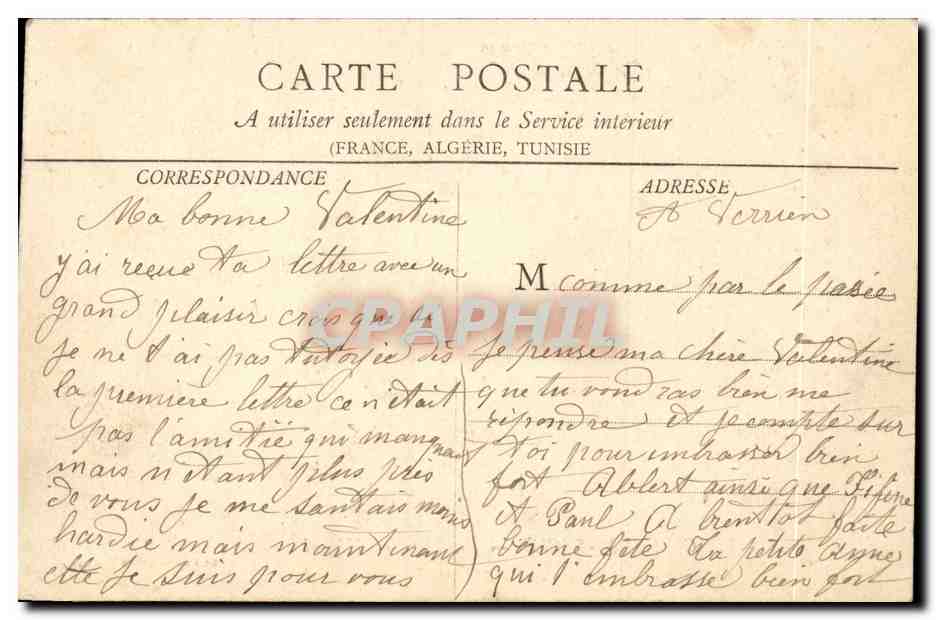 CARTE POSTALE
A utiliser seulement dans le Service interieur
(FRANCE, ALGÉRIE, TUNISIE
CORRESPONDANCE
Ma bonne Valentine
j'ai reçue ta lettre avec un
grand plaisir crois que si
je ne t'ai pas tutoyée dès
la première lettre ce n'était
pas l'amitié qui manquait
mais n'étant plus près
de vous je me santais moins
hardie mais maintenant
je suis pour vous
ADRESSE
A Verrien
M comme par le pasée
Je pense ma chère Valentine
que tu voudras bien me
répondre et je compte sur
toi pour embrasser bien
fort Ablert ainsi que Fifine
et Paul A bientot faite
bonne fete La petite Anne
qui t'embrasse bien fort
CPAPHIL